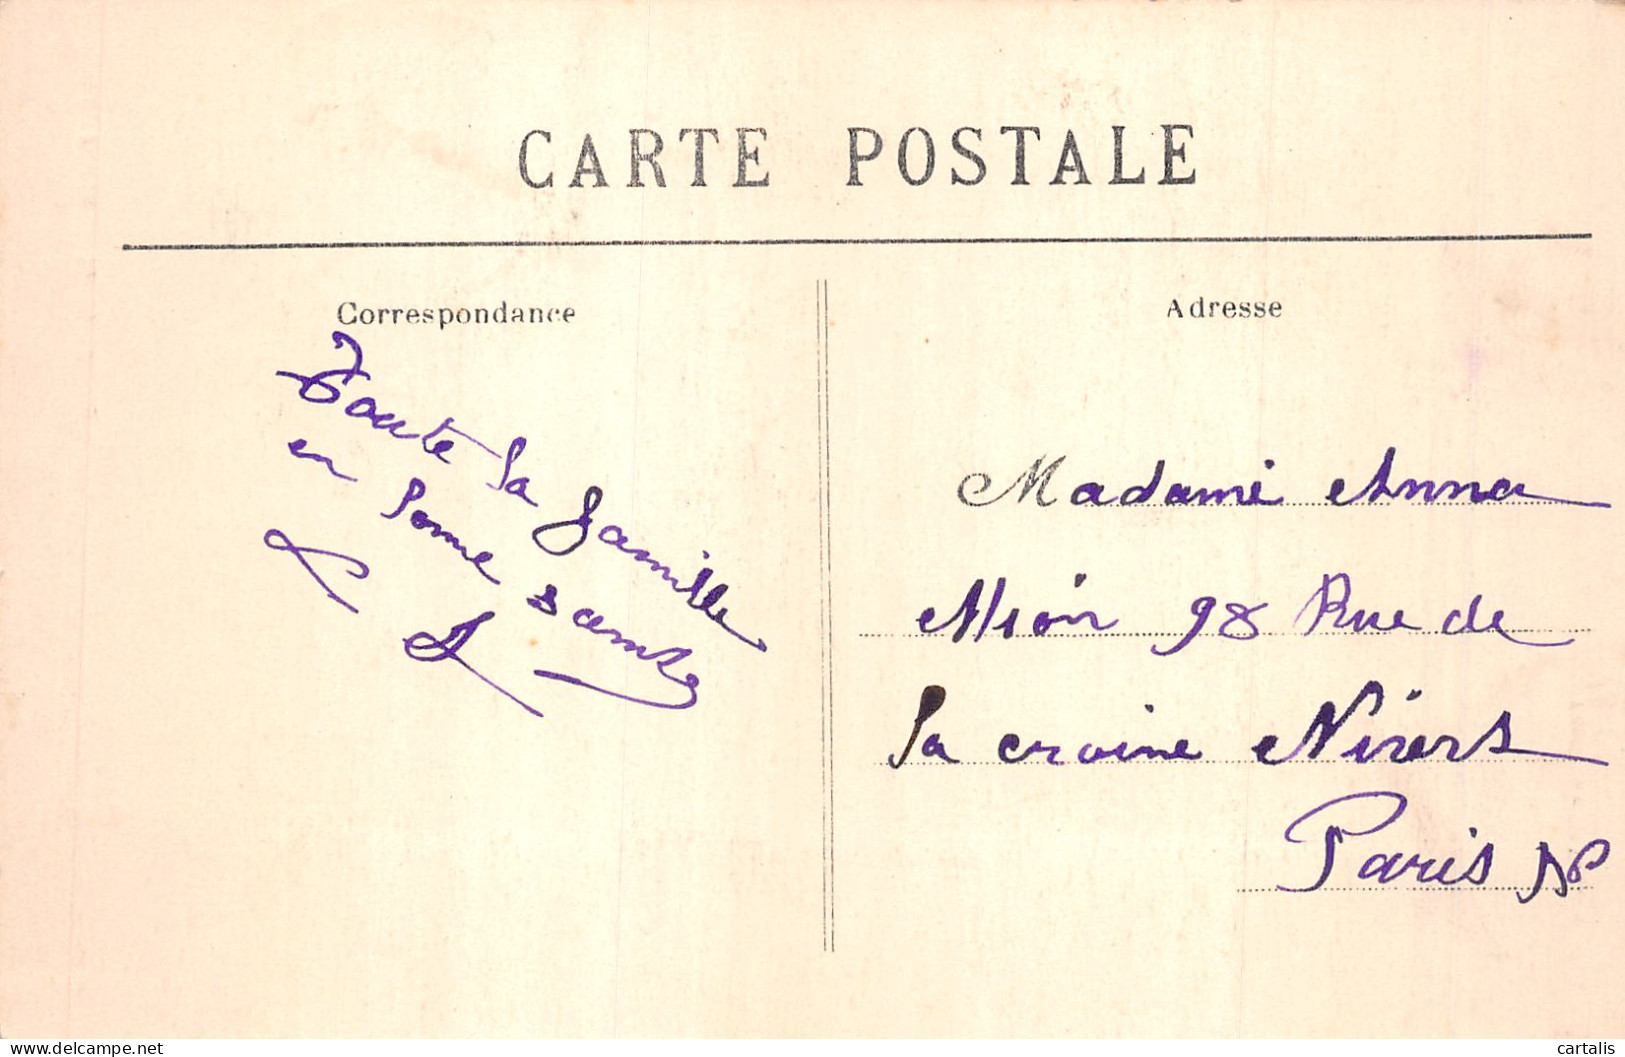 CARTE POSTALE
Correspondance
Toute la famille
en bonne sante
Adresse
Madame Anna
98 Rue de
la croix Nivert
Paris
delcampe.net
cartalis